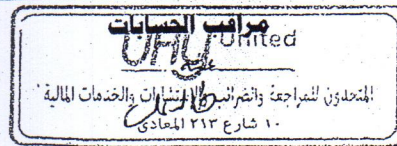 مراقب الحسابات
UHY United
المتحدون للمراجعة والضرائب والاستشارات والخدمات المالية
١٠ شارع ٢١٣ المعادى